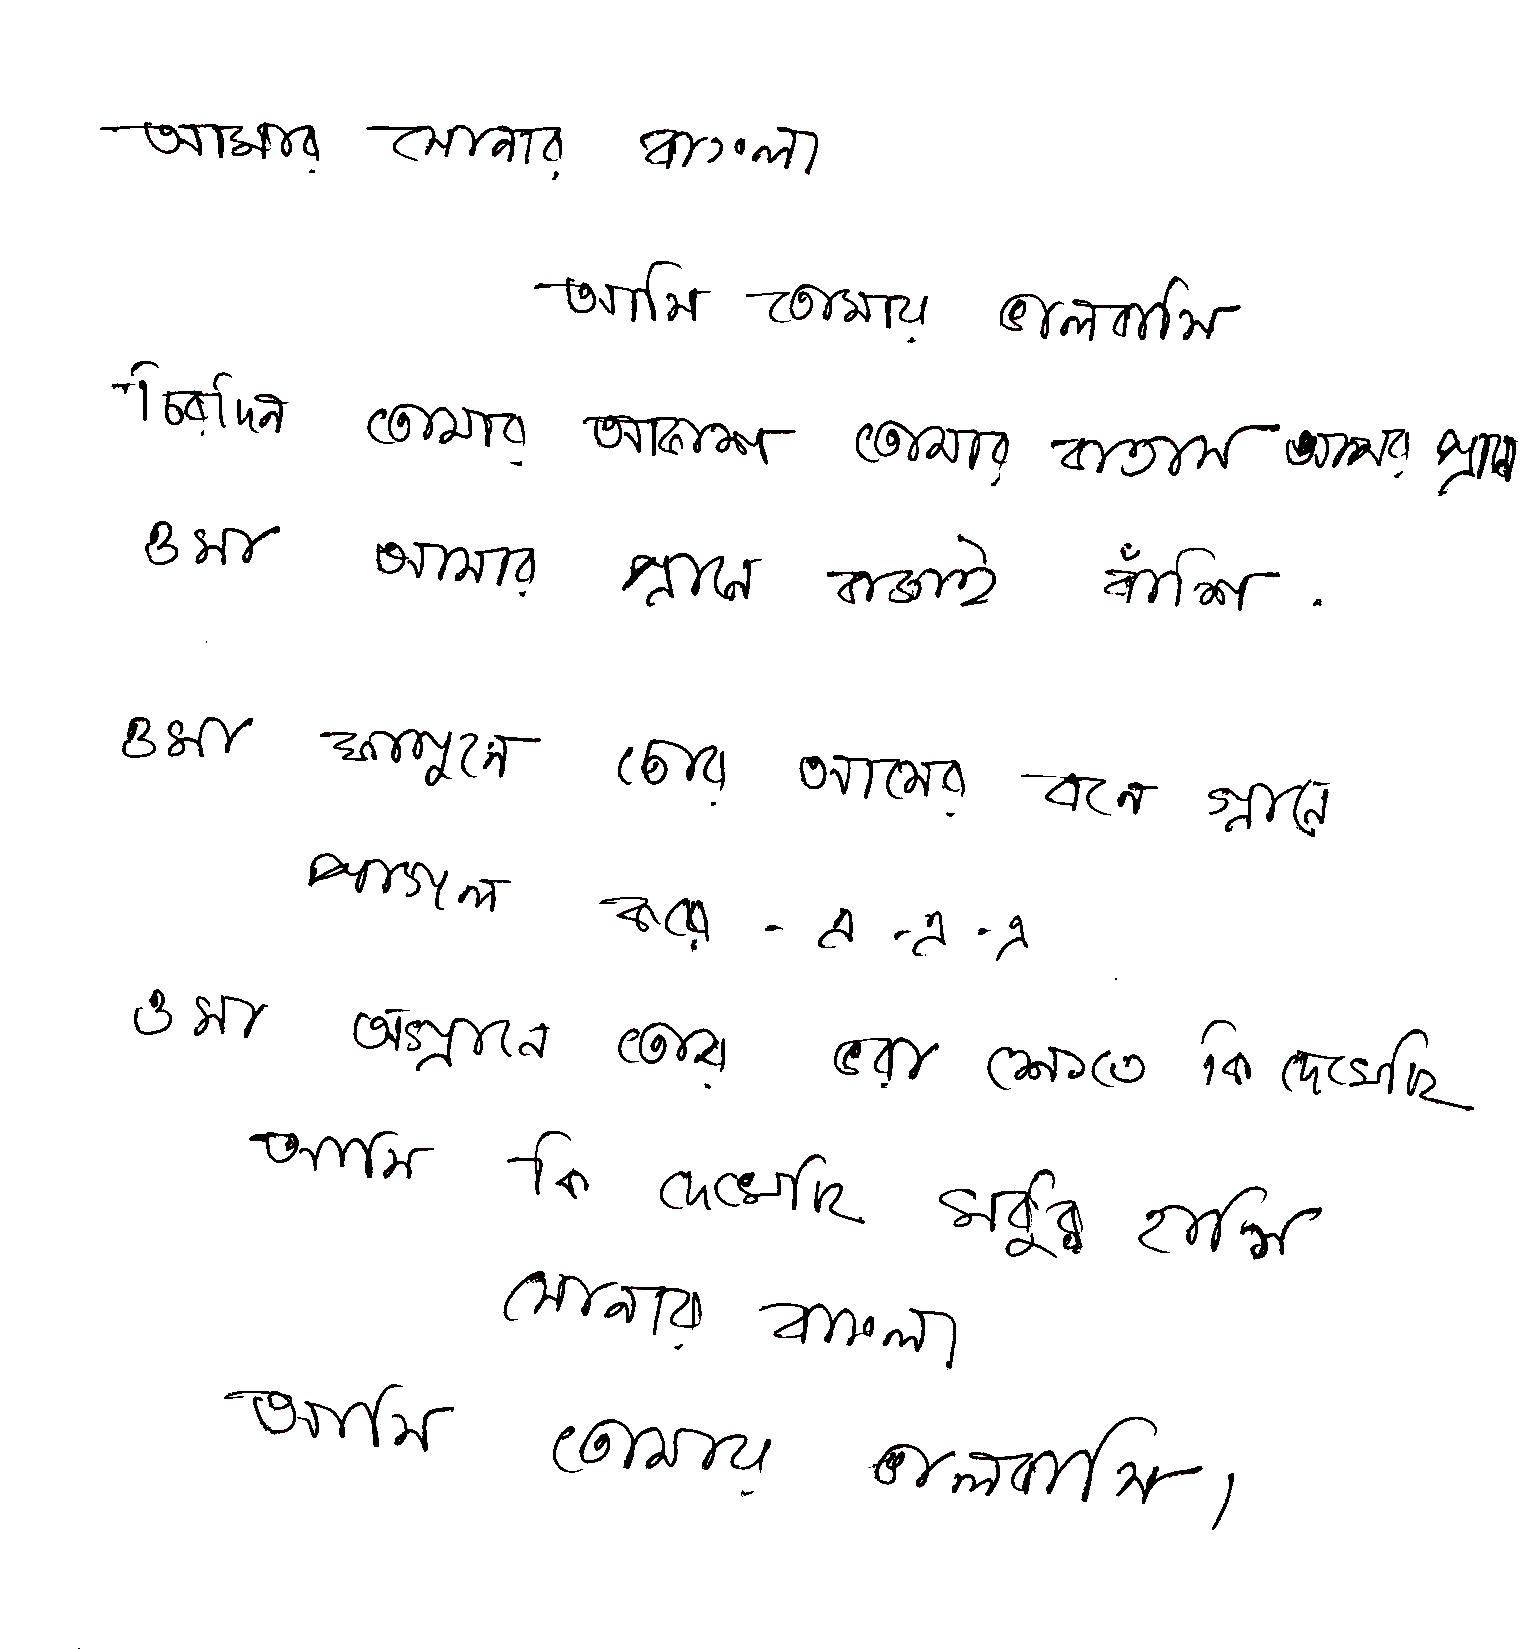 আমার সোনার বাংলা
আমি তোমায় ভালবাসি
চিরদিন তোমার আকাশ তোমার বাতাস আমার প্রানে
ওমা আমার প্রানে বাজাই বাঁশি.
ওমা ফাগুনে তোর আমের বনে ঘ্রানে
পাগল করে - এ - এ - এ
ওমা অঘ্রানে তোর ভরা ক্ষেতে কি দেখেছি
আমি কি দেখেছি মধুর হাসি
সোনার বাংলা
আমি তোমায় ভালবাসি।